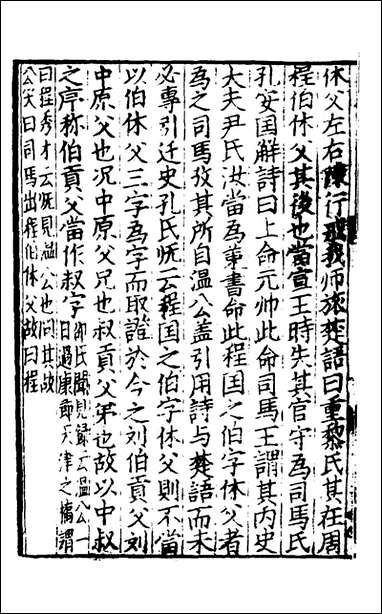 休父左右陳行戒我师旅楚語曰重黎氏其在周
程伯休父其後也當宣王時失其官守為司馬氏
孔安国解詩曰上命元帅此命司馬王謂其内史
大夫尹氏汝當為策書命此程国之伯字休父者
為之司馬攷其所自温公盖引用詩与楚語而未
必專引迁史孔氏既云程国之伯字休父則不當
以伯休父三字為字而取證於今之刘伯貢父刘
中原父也况中原父兄也叔貢父弟也故以中叔
之序称伯貢父當作叔字邵氏聞見録云温公一
日過康節天津之居謁
曰程秀才云既見温公也问其故
公笑曰司馬出程伯休父故曰程